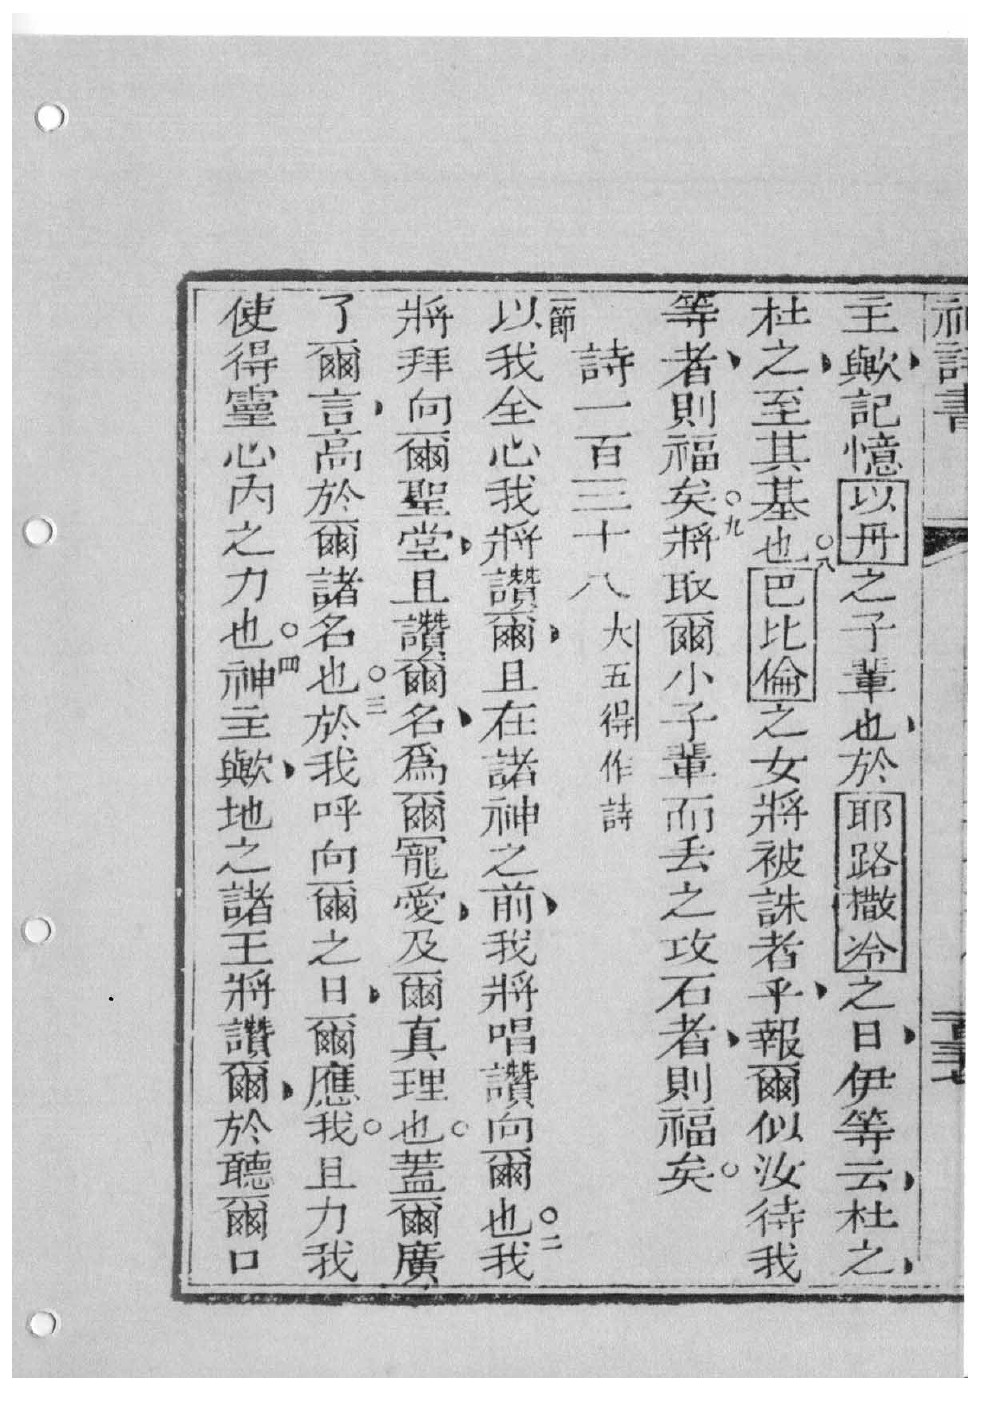 神詩書
主歟記憶以丹之子輩也於耶路撒冷之日伊等云杜之
杜之至其基也○八巴比倫之女將被誅者乎報爾似汝待我
等者則福矣○九將取爾小子輩而丢之攻石者則福矣○
詩一百三十八 大五得作詩
一節以我全心我將讚爾且在諸神之前我將唱讚向爾也○二我
將拜向爾聖堂且讚爾名爲爾寵愛及爾真理也○蓋爾廣
了爾言高於爾諸名也○三於我呼向爾之日爾應我○且力我
使得靈心內之力也○四神主歟地之諸王將讚爾於聽爾口